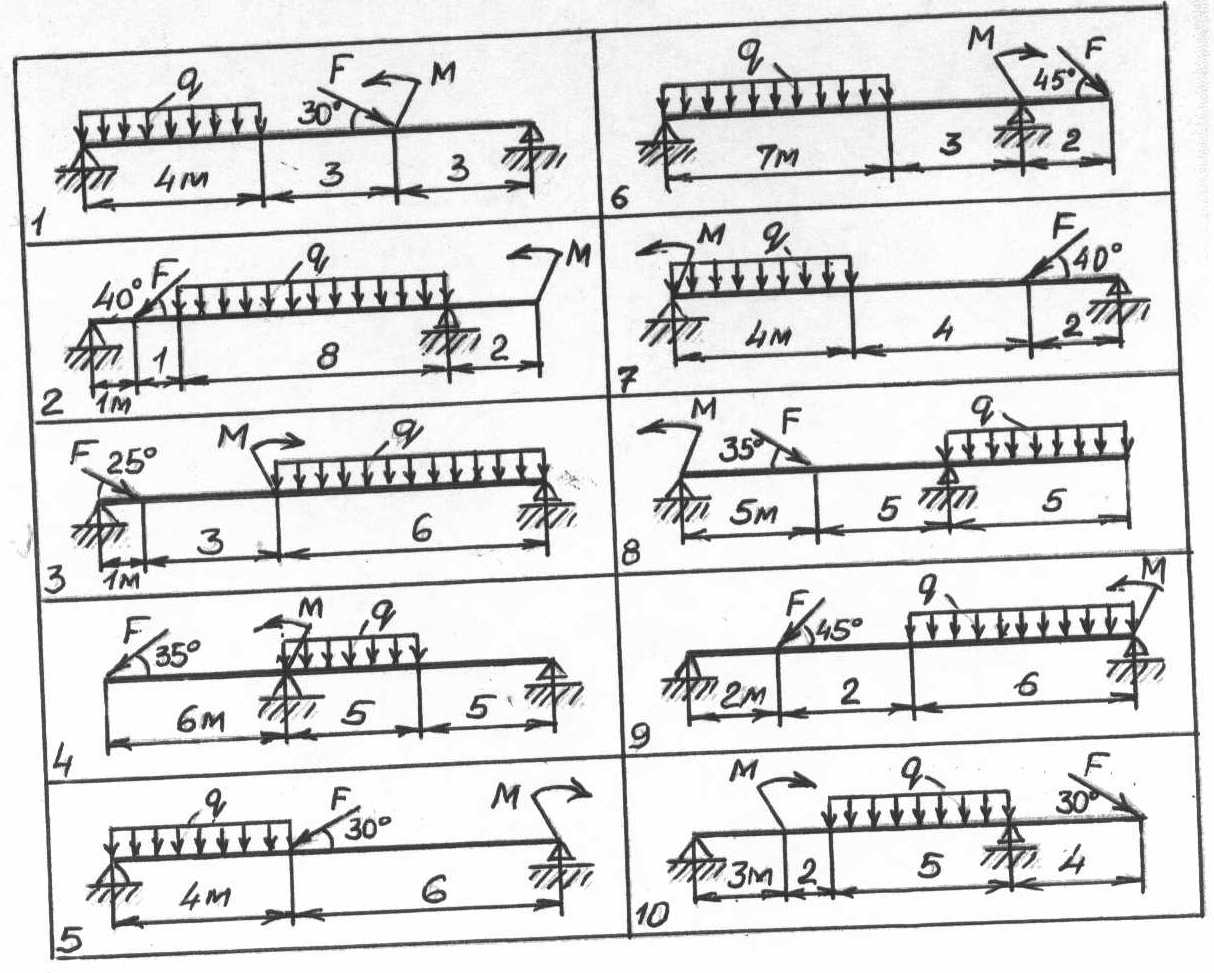 q F 30° M
4м 3 3
1
40° F q M
1м 1 8 2
2
F 25° M q
1м 3 6
3
F 35° M q
6м 5 5
4
q F 30° M
4м 6
5
q M F 45°
7м 3 2
6
M q F 40°
4м 4 2
7
M 35° F q
5м 5 5
8
F 45° q M
2м 2 6
9
M q F 30°
3м 2 5 4
10